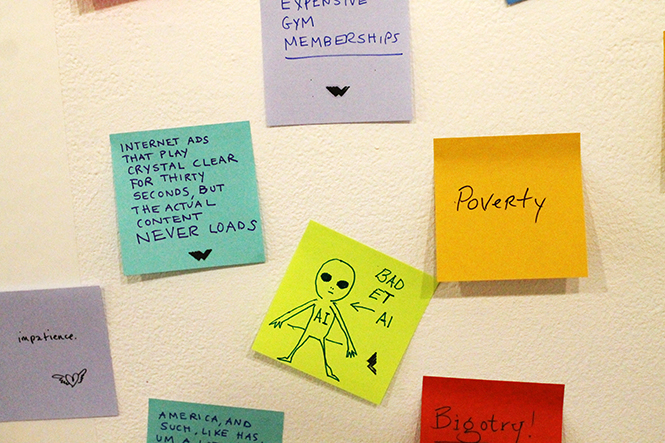 EXPENSIVE
GYM
MEMBERSHIPS
INTERNET ADS
THAT PLAY
CRYSTAL CLEAR
FOR THIRTY
SECONDS, BUT
THE ACTUAL
CONTENT
NEVER LOADS
Poverty
BAD
ET
AI
AI
impatience.
AMERICA, AND
SUCH, LIKE HAS,
UM A
Bigotry!